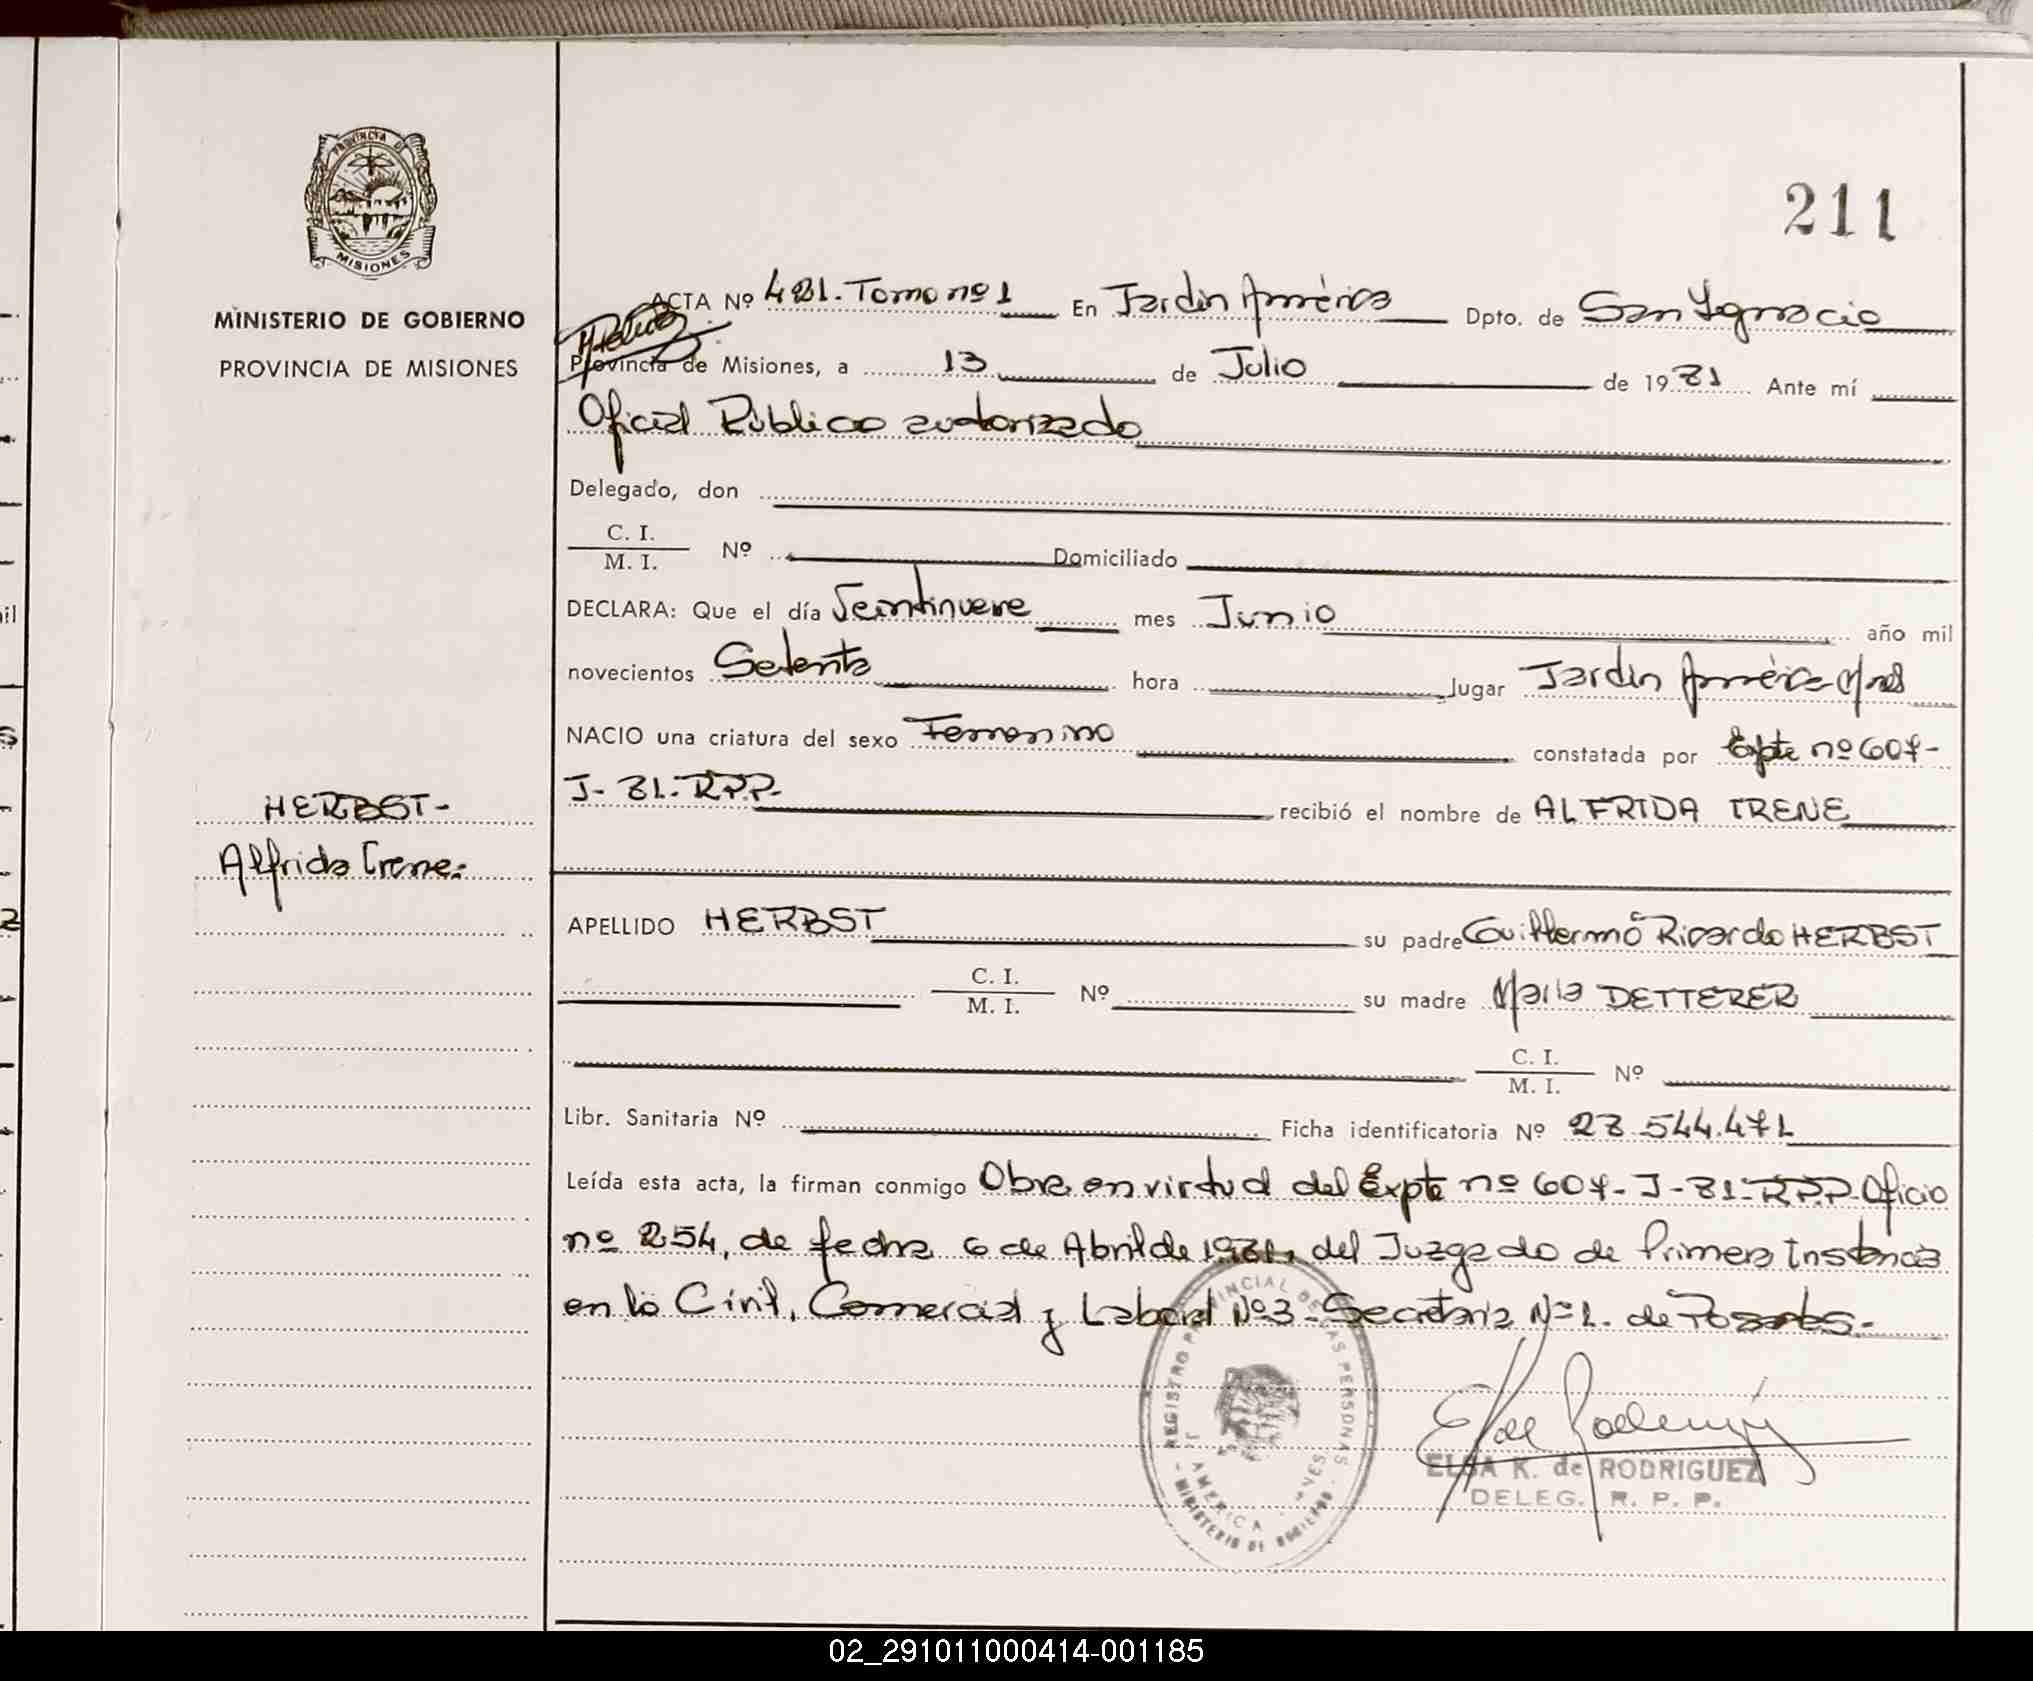 PROVINCIA DE
MISIONES
MINISTERIO DE GOBIERNO
PROVINCIA DE MISIONES
211
ACTA Nº 481. Tomo nº 1 En Jardín América Dpto. de San Ignacio
Provincia de Misiones, a 13 de Julio de 1981 Ante mí
Oficial Público autorizado
Delegado, don
C. I.
M. I. Nº Domiciliado
DECLARA: Que el día Veintinueve mes Junio año mil
novecientos Setenta hora lugar Jardín América Mnes
NACIO una criatura del sexo Femenino constatada por Expte nº 607-
J-81-RPP- recibió el nombre de ALFRIDA IRENE
HERBST-
Alfrida Irene.
APELLIDO HERBST su padre Guillermo Ricardo HERBST
C. I.
M. I. Nº su madre María DETTERER
C. I.
M. I. Nº
Libr. Sanitaria Nº Ficha identificatoria Nº 28.544.471
Leída esta acta, la firman conmigo Obra en virtud del Expte nº 607-J-81-RPP. Oficio
nº 254, de fecha 6 de Abril de 1981, del Juzgado de Primera Instancia
en lo Civil, Comercial y Laboral Nº3-Secretaria Nº 1. de Posadas.-
REGISTRO PROVINCIAL DE LAS PERSONAS
J. AMERICA - MNES
- MINISTERIO DE GOBIERNO -
ELSA K. de RODRIGUEZ
DELEG. R. P. P.
02_291011000414-001185